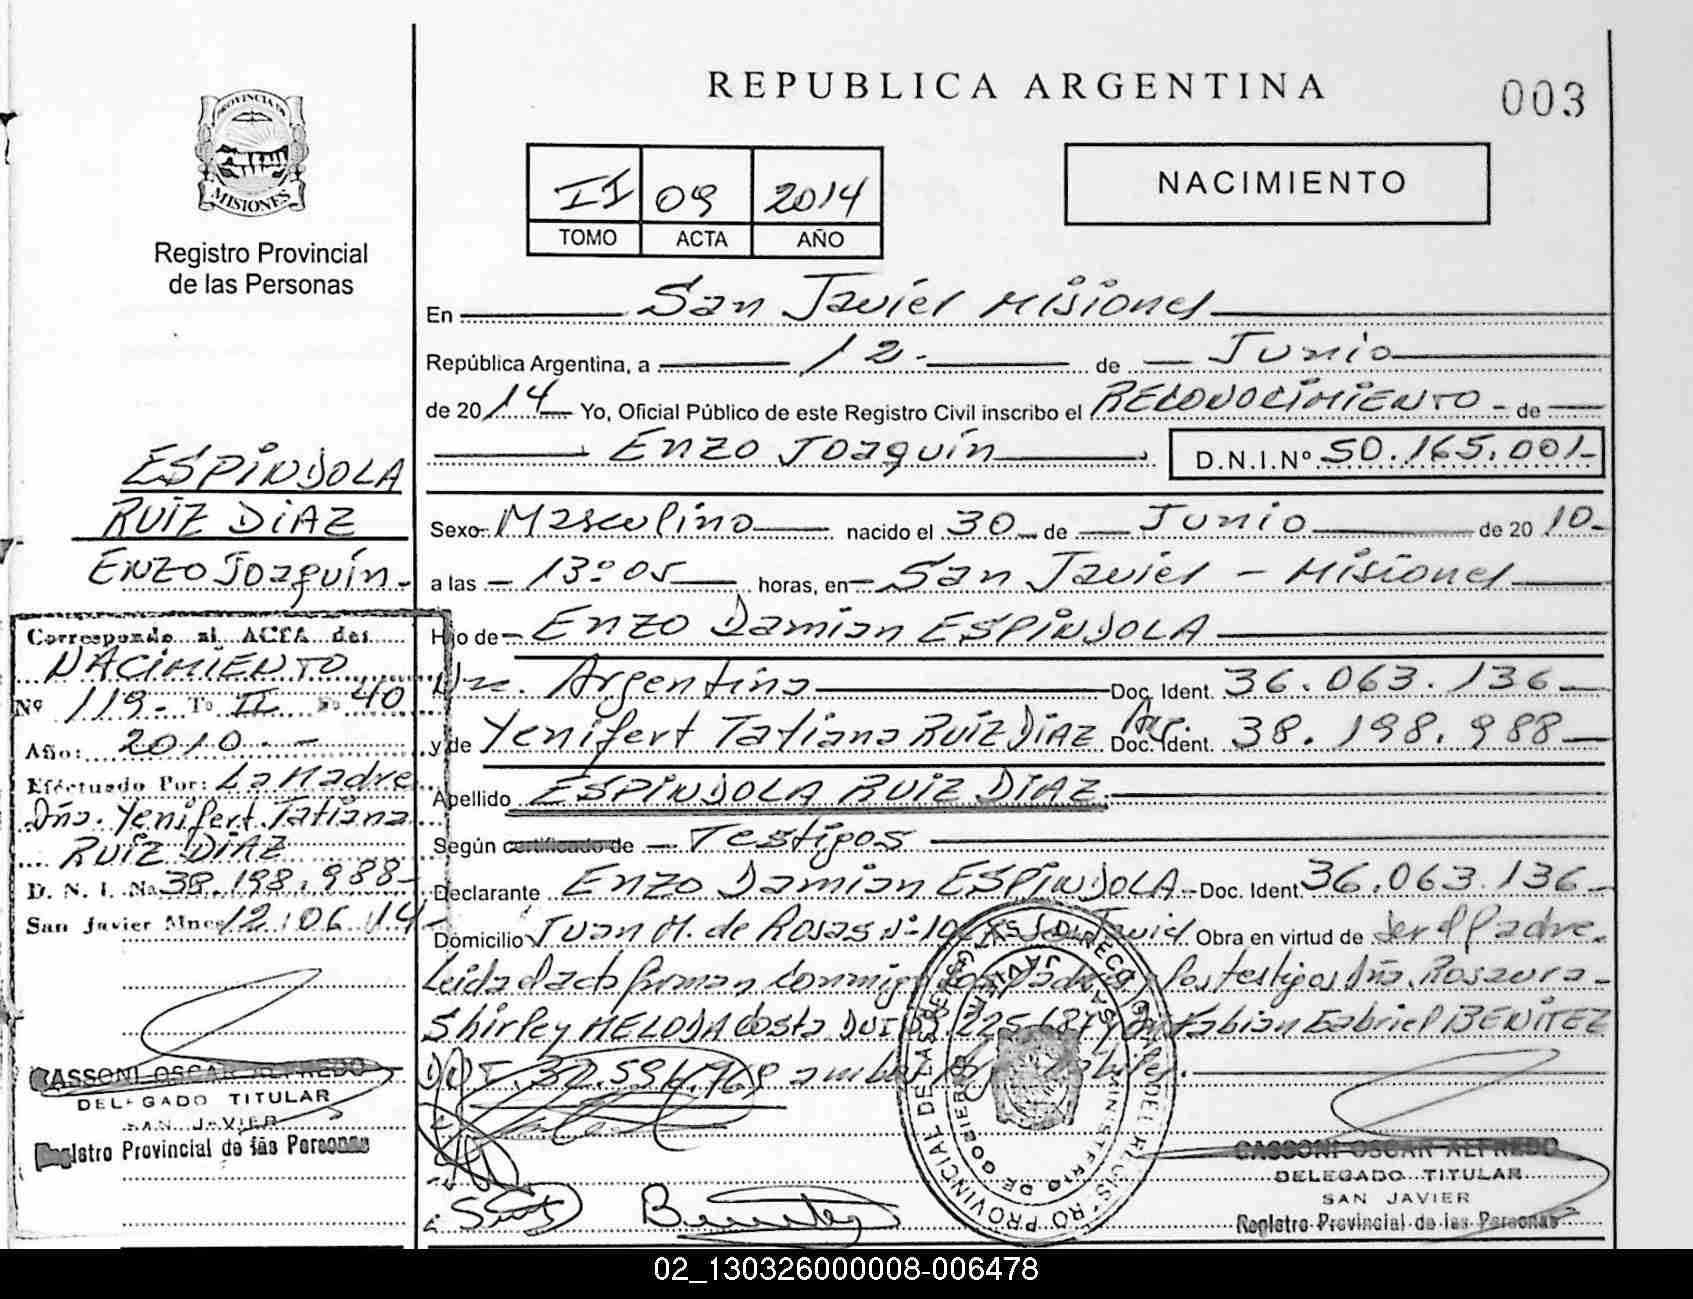 PROVINCIA DE
MISIONES
Registro Provincial
de las Personas
ESPINDOLA
RUIZ DIAZ
ENZO JOAquín-
Corresponde al ACTA del
NACIMIENTO
Nº 119- Tº II Fº 40
Año: 2010.-
Efectuado Por: La Madre
Dña. Yenifert Tatiana
RUIZ DIAZ
D. N. I. Nº 38.198.988-
San Javier Mnes 12.06.14
CASSONI OSCAR ALFREDO
DELEGADO TITULAR
SAN JAVIER
Registro Provincial de las Personas
REPUBLICA ARGENTINA
003
II 09 2014
TOMO ACTA AÑO
NACIMIENTO
En San Javier Misiones
República Argentina, a 12.- de Junio
de 2014 Yo, Oficial Público de este Registro Civil inscribo el RECONOCIMIENTO - de
Enzo Joaquín D.N.I.Nº 50.165.001-
Sexo- Masculino nacido el 30 de Junio de 2010-
a las 13:05 horas, en San Javier - Misiones
Hijo de Enzo Damian ESPINDOLA
Nac. Argentino Doc. Ident. 36.063.136
y de Yenifert Tatiana RUIZ DIAZ Doc. Ident. 38.198.988
Apellido ESPINDOLA RUIZ DIAZ
Según certificado de Testigos
Declarante Enzo Damian ESPINDOLA Doc. Ident. 36.063.136
Domicilio Juan M. de Rosas Nº San Javier Obra en virtud de ser el Padre.
Leida el acta firman conmigo los padres y los testigos Dña. Rosaura
Shirley MELO DA Costa DNI Fabian Gabriel BENITEZ
DNI.
REGISTRO PROVINCIAL DE LAS PERSONAS
MINISTERIO DE GOBIERNO
SAN JAVIER
CASSONI OSCAR ALFREDO
DELEGADO TITULAR
SAN JAVIER
Registro Provincial de las Personas
02_130326000008-006478